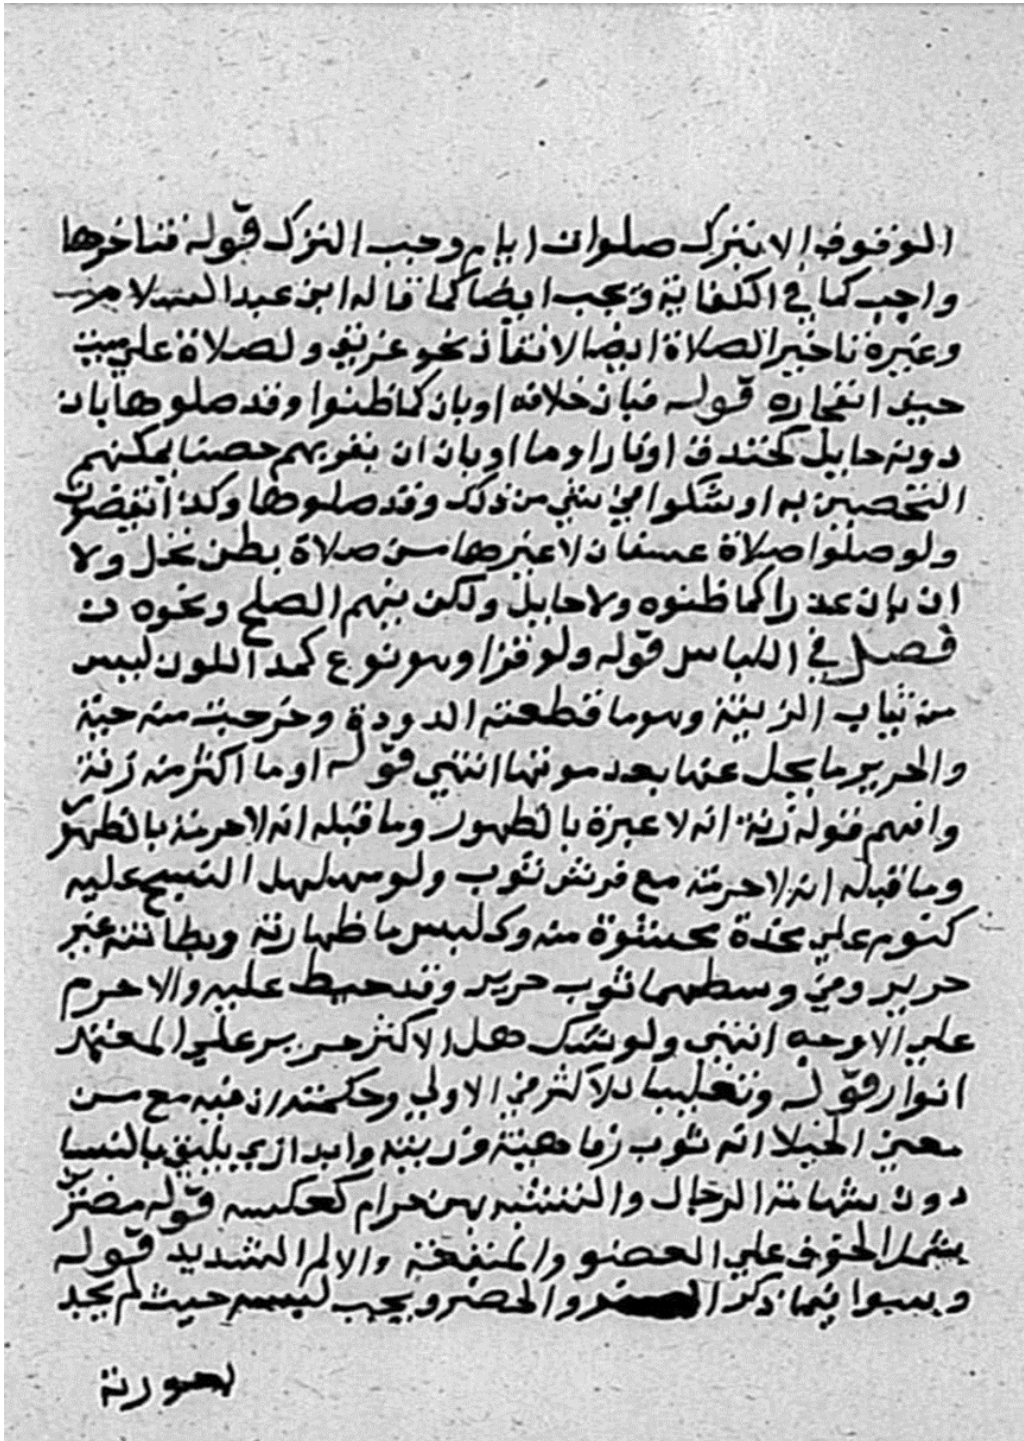 الوقوف الا بترك صلوات ايام وجب الترك قوله فتاخرها
واجب كما في الكفاية ويجب ايضا كما قاله ابن عبد السلام
وغيره تاخير الصلاة ايضا لانقاذ نحو غريق ولصلاة علي ميت
خيف انفجاره قوله فبان خلافه او بان كما ظنوا وقد صلوها بان
دونه حايل كخندق او نار او ما او بان ان بقربهم حصنا يمكنهم
التحصين به او شكوا في شي من ذلك وقد صلوها وكذا تقضون
ولو صلوا صلاة عسفان لا غيرها من صلاة بطن نخل ولا
ان بان عدوا كما ظنوه ولا حايل ولكن نيتهم الصلح ونحوه
فصل في اللباس قوله ولو قزا وهو نوع كمد اللون ليس
من ثياب الزينة وهو ما قطعته الدودة وخرجت منه حية
والحرير ما يحل عنها بعد موتها انتهي قوله او ما اكثر منه زنة
وافهم قوله زنة انه لا عبرة بالظهور وما قبله انه لا حرمة بالظهور
وما قبله انه لا حرمة مع فرش ثوب ولو مهلهل النسج عليه
كنوم علي مخدة محشوة منه وكلبس ما ظهارته وبطانته غير
حرير وفي وسطهما ثوب حرير وقد خيط عليه والا حرم
علي الاوجه انتهي ولو شك هل الاكثر حرير علي المعتمد
انوار قوله وتغليبا للاكثر في الاولي وحكمته ان فيه مع من
معني الخيلا انه ثوب رفاهية وزينة وابدا زي يليق بالنسا
دون شهامة الرجال والتشبه بهن حرام كعكسه قوله مضر
يشمل الخوف علي العضو والمنفعة والالم الشديد قوله
وسوا فيما ذكر والحضر ويجب لبسه حيث لم يجد
لعورته